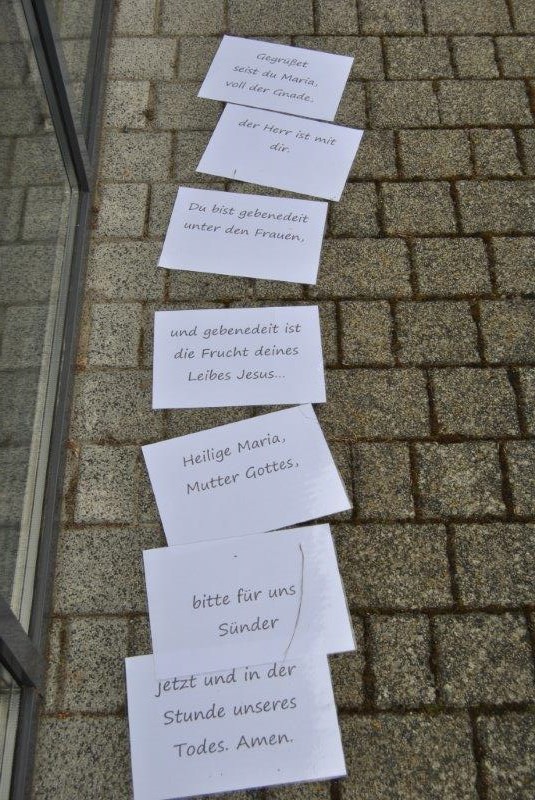 Gegrüßet
seist du Maria,
voll der Gnade,
der Herr ist mit
dir.
Du bist gebenedeit
unter den Frauen,
und gebenedeit ist
die Frucht deines
Leibes Jesus...
Heilige Maria,
Mutter Gottes,
bitte für uns
Sünder
jetzt und in der
Stunde unseres
Todes. Amen.